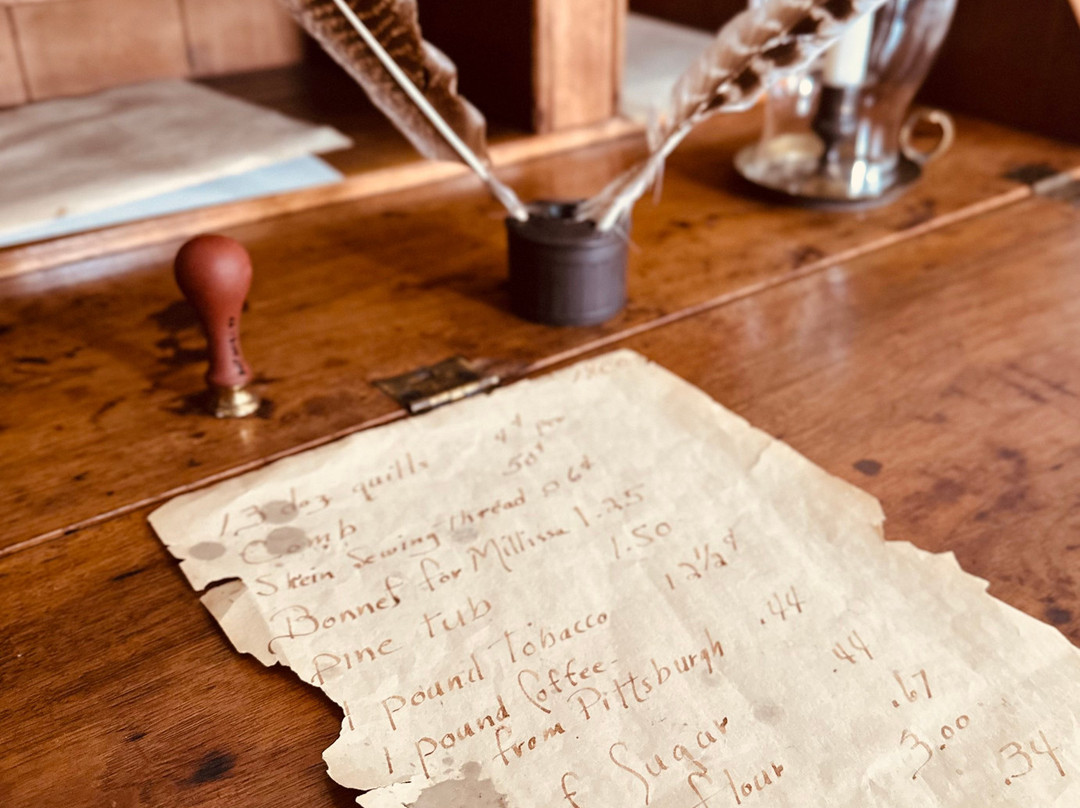 13 doz quills 4¢ per
Comb 50¢
Skein Sewing thread 06¢
Bonnet for Millissa 1.25
Pine tub 1.50
1 pound Tobacco 12½¢
1 pound Coffee .44
from Pittsburgh .44
f Sugar .67
flour 3.00
.34